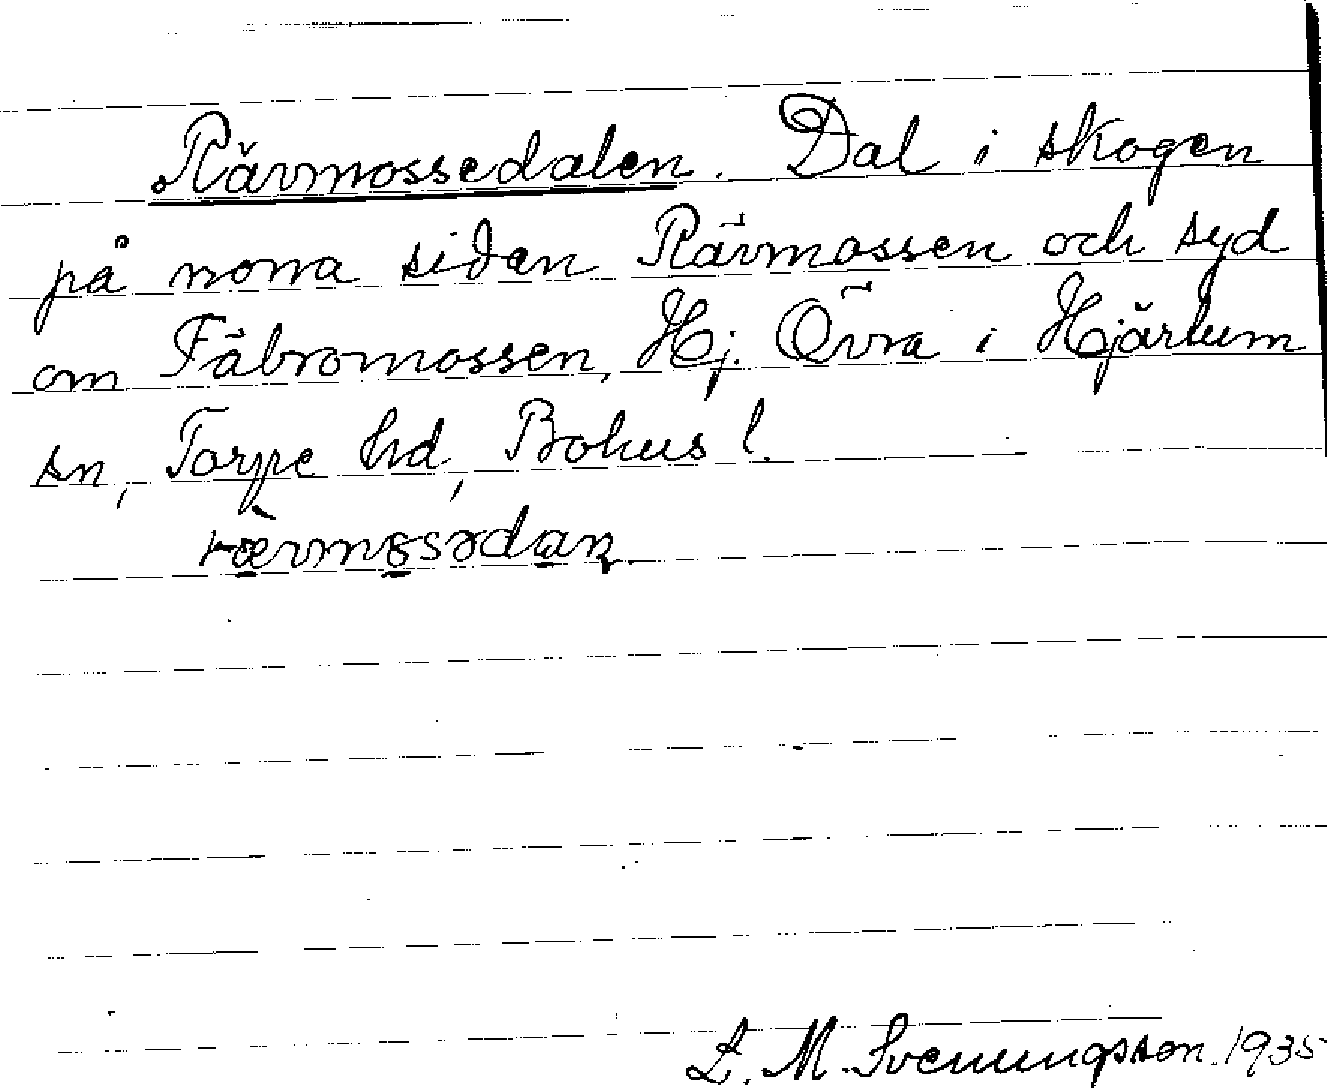 Rävmossedalen. Dal i skogen
på norra sidan Rävmossen och syd
om Fäbromossen, Hj. Övra i Hjärtum
sn, Torpe hd, Bohus l.
rævmɵsədan.
L. M. Svenungsson. 1935